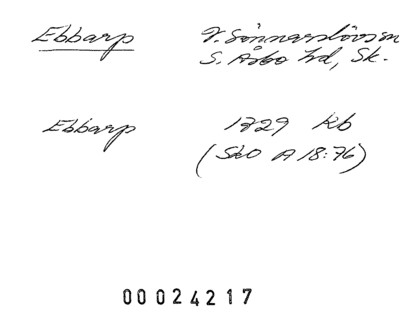 Ebbarp V. Sönnarslövs sn
S. Åsbo hd, Sk.
Ebbarp 1729 Kb
(SkO A 18:76)
00024217